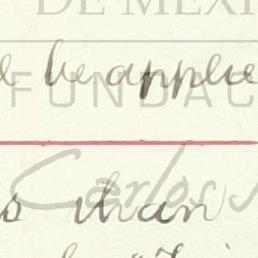 DE MÉXI
be applie
FUNDAC
Carlos
than